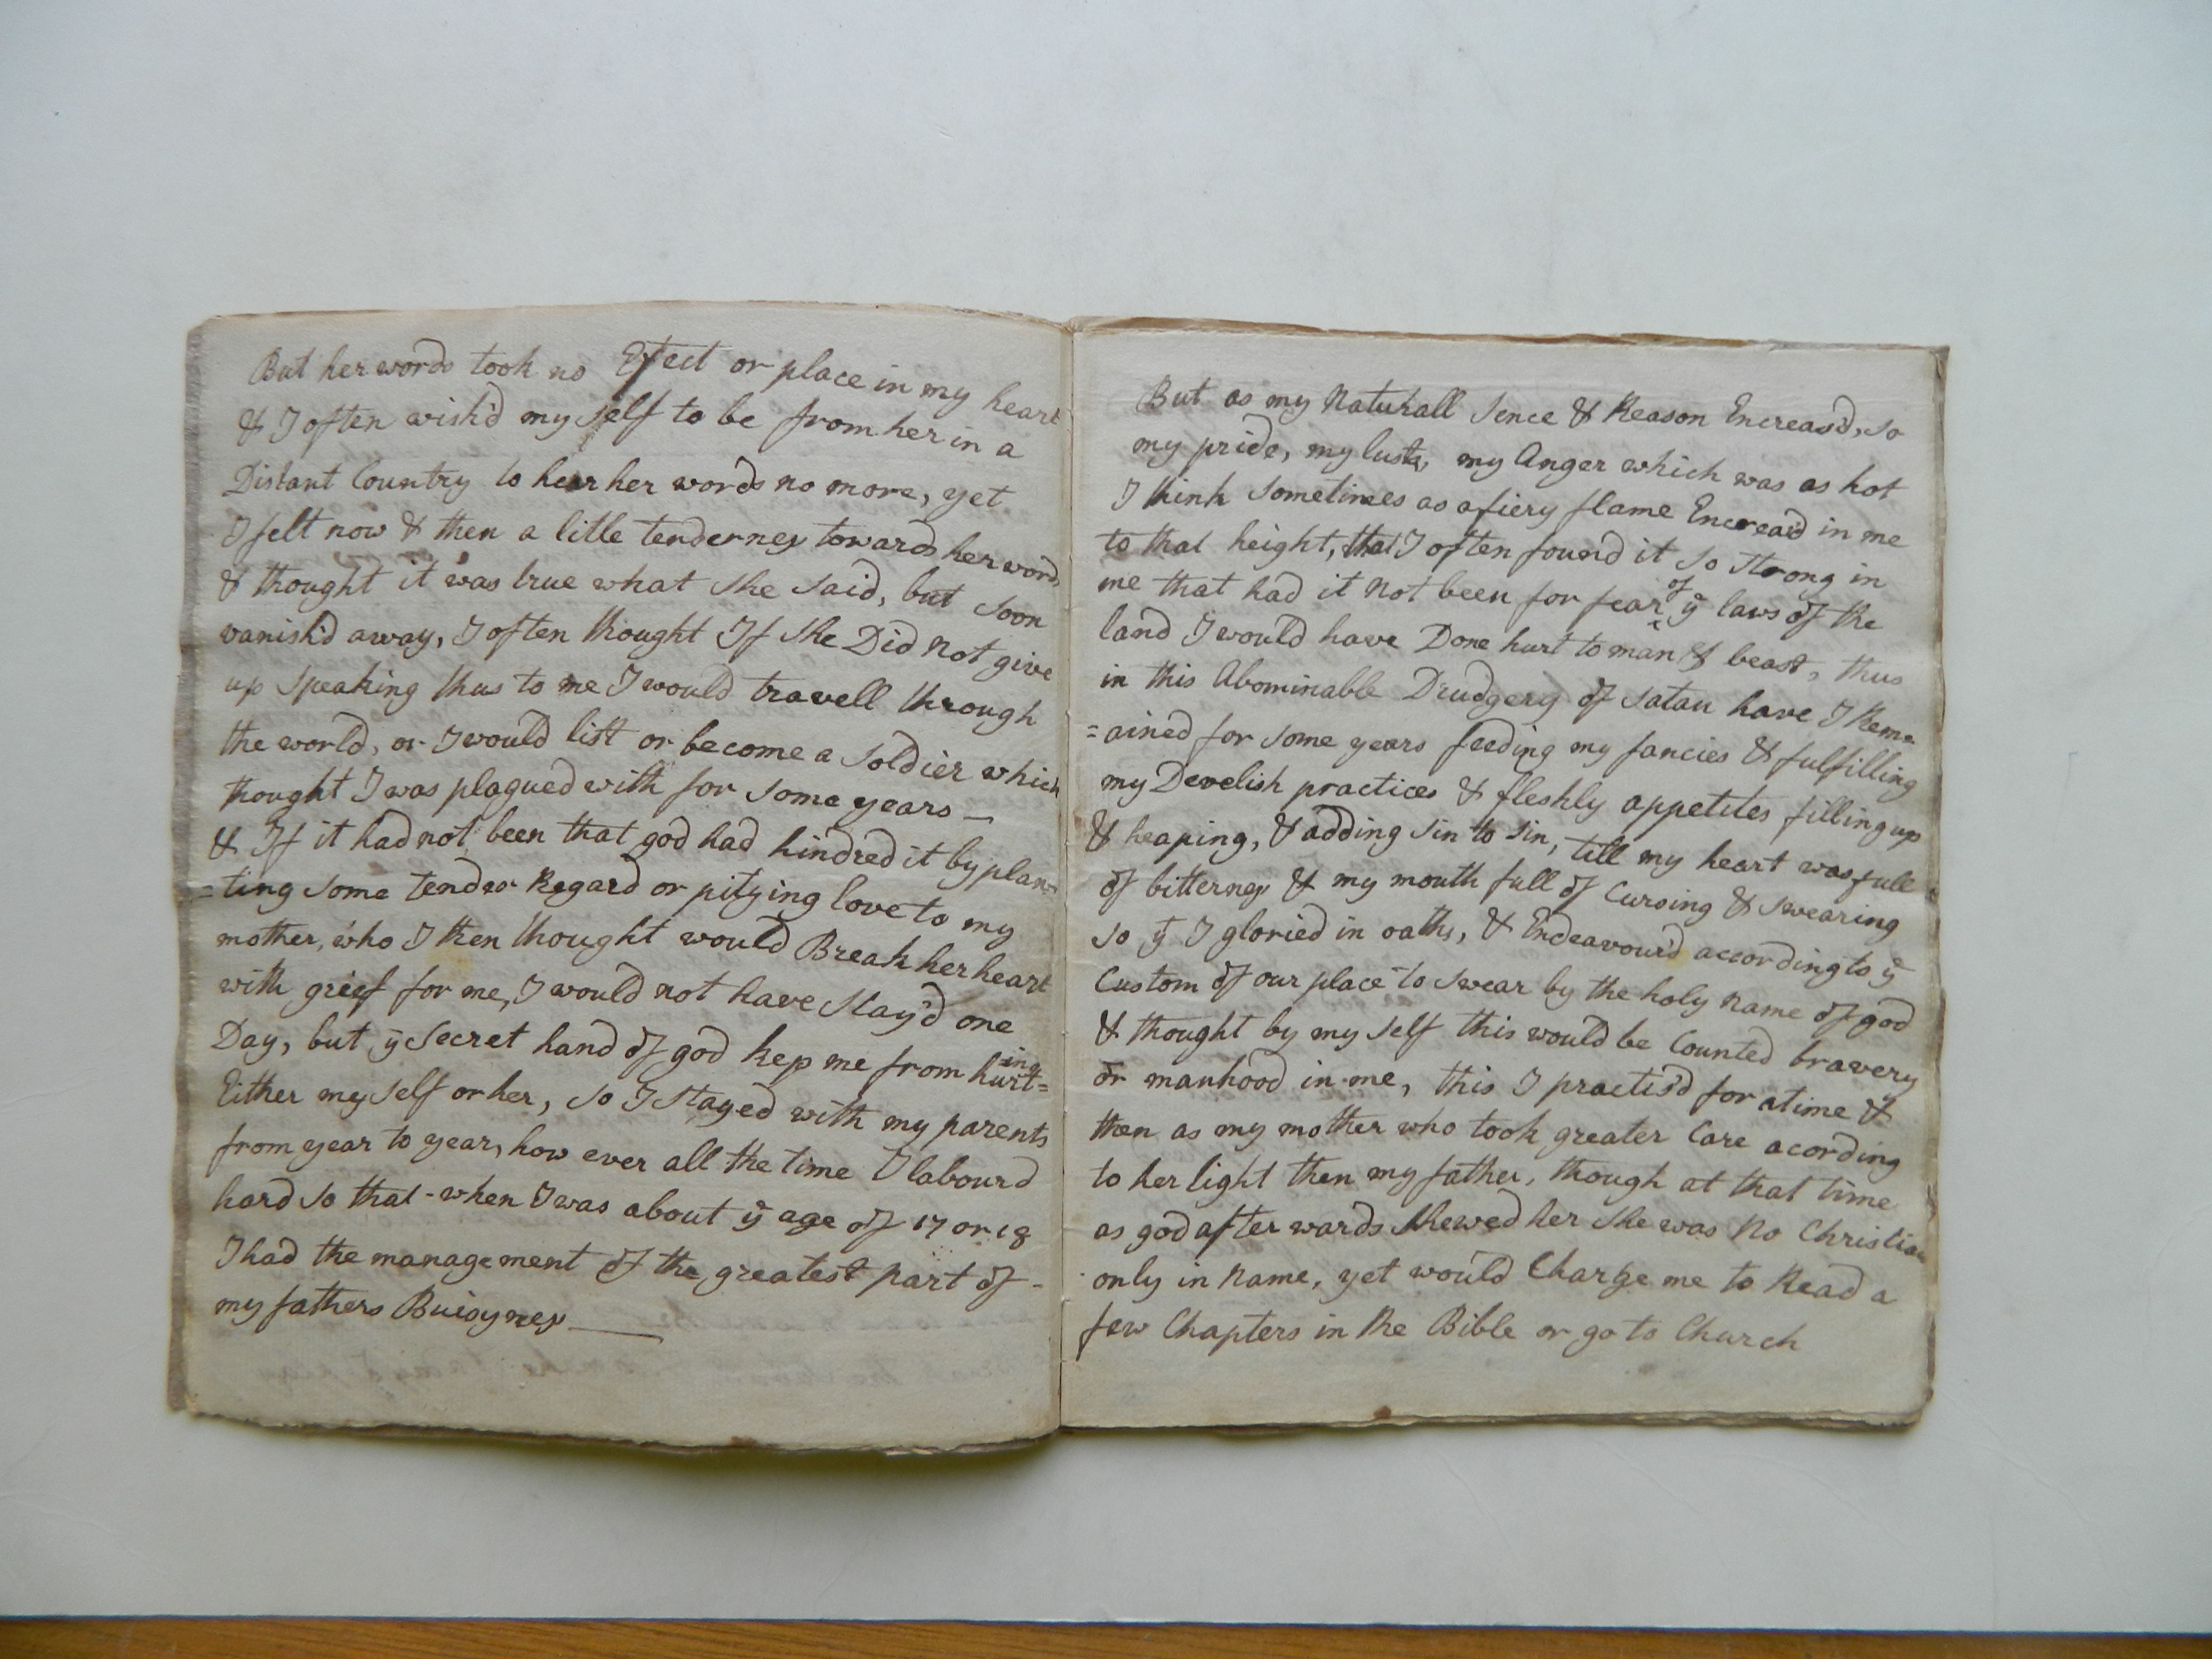 But her words took no Efect or place in my heart
& I often wish'd my self to be from her in a
Distant Country to hear her words no more, yet
I felt now & then a litle tenderness towards her words
& thought it was true what she said, but soon
vanish'd away, I often thought If she Did not give
up speaking thus to me I would travell through
the world, or I would list or become a soldier which
thought I was plagued with for some years —
& If it had not been that god had hindred it by plan=
=ting some tender Regard or pitying love to my
mother, who I then thought would Break her heart
with grief for me, I would not have stay'd one
Day, but ÿ secret hand of god kep me from hurt=ing
Either my self or her, so I stayed with my parents
from year to year, how ever all the time I labourd
hard so that - when I was about ÿ age of 17 or 18
I had the management of the greatest part of -
my fathers Buisyness —
But as my Naturall Sence & Reason Encreas'd, so
my pride, my lusts, my Anger which was as hot
I think sometimes as a fiery flame Encreas'd in me
to that height, that I often found it so strong in
me that had it not been for fear of ÿ laws of the
land I would have Done hurt to man & beast, thus
in this Abominable Drudgery of satan have I Rem=
=ained for some years feeding my fancies & fulfilling
my Develish practices & fleshly appetites filling up
& heaping, & adding sin to sin, till my heart was full
of bitterness & my mouth full of Cursing & swearing
so ÿ I gloried in oaths, & Endeavour'd according to ÿ
Custom of our place to swear by the holy name of god
& thought by my self this would be Counted bravery
or manhood in me, this I practis'd for a time &
then as my mother who took greater Care acording
to her light then my father, though at that time
as god after wards shewed her she was No Christian
only in name, yet would Charge me to Read a
few Chapters in the Bible or go to Church